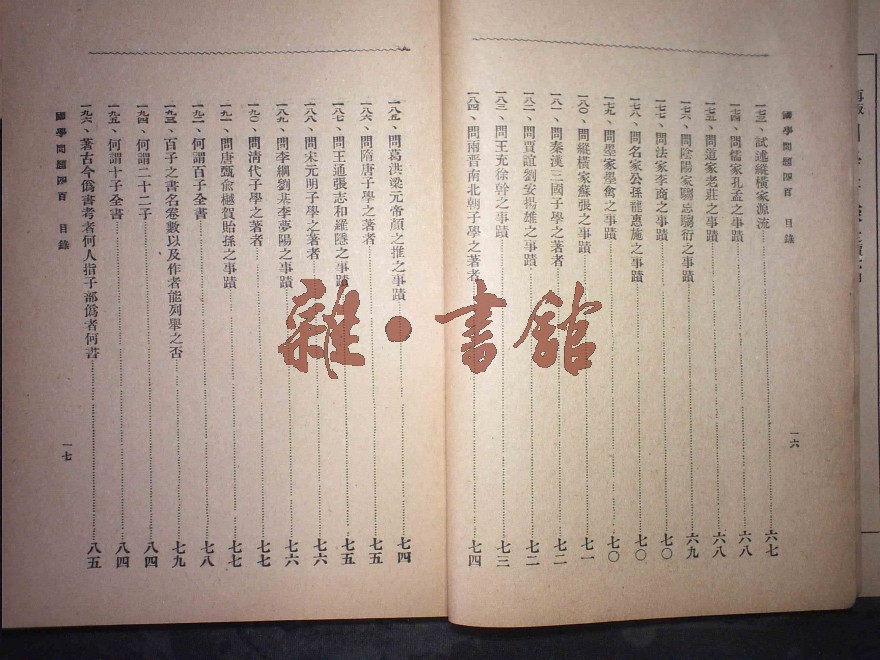 國學問題四百 目錄
一六
一七三、試述縱橫家源流 六七
一七四、問儒家孔孟之事蹟 六八
一七五、問道家老莊之事蹟 六八
一七六、問陰陽家騶忌騶衍之事蹟 六九
一七七、問法家李商之事蹟 七〇
一七八、問名家公孫龍惠施之事蹟 七〇
一七九、問墨家墨禽之事蹟 七〇
一八〇、問縱橫家蘇張之事蹟 七一
一八一、問秦漢三國子學之著者 七二
一八二、問賈誼劉安揚雄之事蹟 七二
一八三、問王充徐幹之事蹟 七三
一八四、問兩晋南北朝子學之著者 七四
一八五、問葛洪梁元帝顏之推之事蹟 七四
一八六、問隋唐子學之著者 七五
一八七、問王通張志和羅隱之事蹟 七五
一八八、問宋元明子學之著者 七六
一八九、問李綱劉基李夢陽之事蹟 七六
一九〇、問清代子學之著者 七七
一九一、問唐甄俞樾賀貽孫之事蹟 七七
一九二、何謂百子全書 七八
一九三、百子之書名卷數以及作者能列舉之否 七九
一九四、何謂二十二子 八四
一九五、何謂十子全書 八四
一九六、著古今偽書考者何人指子部偽者何書 八五
國學問題四百 目錄
一七
雜·書館